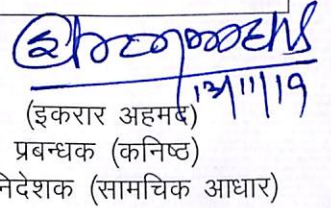 13/11/19
(इकरार अहमद)
प्रबन्धक (कनिष्ठ)
निदेशक (सामचिक आधार)